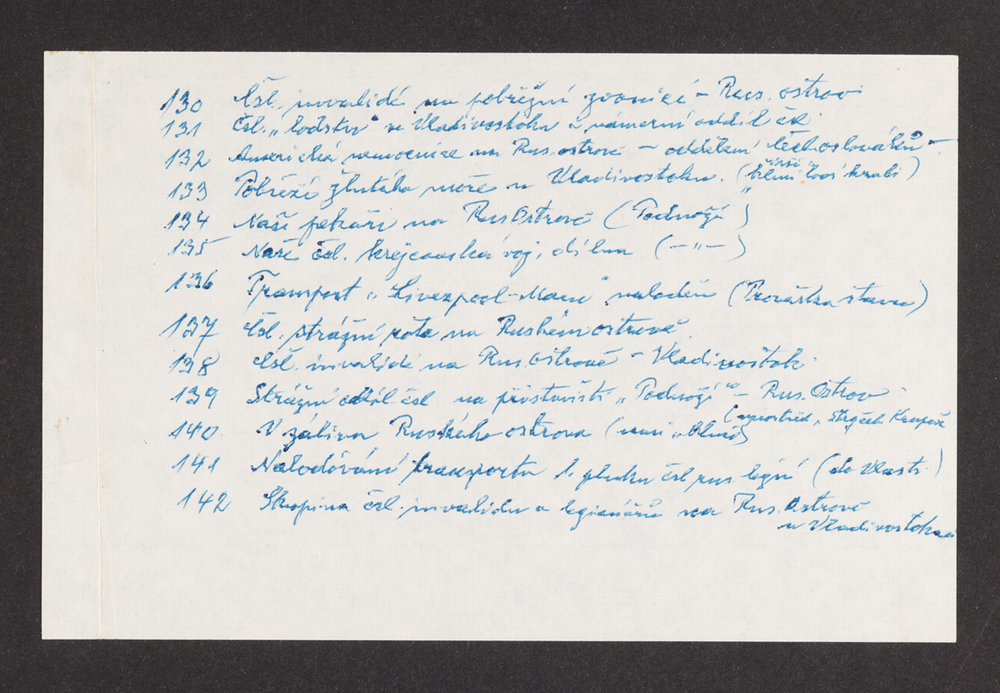 130 Čsl. invalidé na pobřežní zvonici – Rus. ostrov
131 čsl. „loďstvo" ve Vladivostoku a námořní oddíl čsl.
132 Americká nemocnice na Rus. ostrově – oddělení čechoslováků –
133 Pobřeží žlutého moře u Vladivostoku. ( loví kraby)
134 Naši pekaři na Rus. Ostrově (Podnoží)
135 Naše čsl. krejčovská voj. dílna (–„–)
136 Transport „Liverpool-Maru" naloděn ( )
137 Čsl. strážní rota na Ruském ostrově
138 čsl. invalidé na Rus. ostrově – Vladivostok.
139 Strážní oddíl čsl na přístavišti „Podnoží" – Rus. Ostrov
(uprostřed „strýček
140 V zálivu Ruského ostrova
141 Naloďování transportu 1. pluku čsl rus legií (do vlasti)
142 Skupina čsl. invalidů a legionářů na Rus. Ostrově
u Vladivostoku